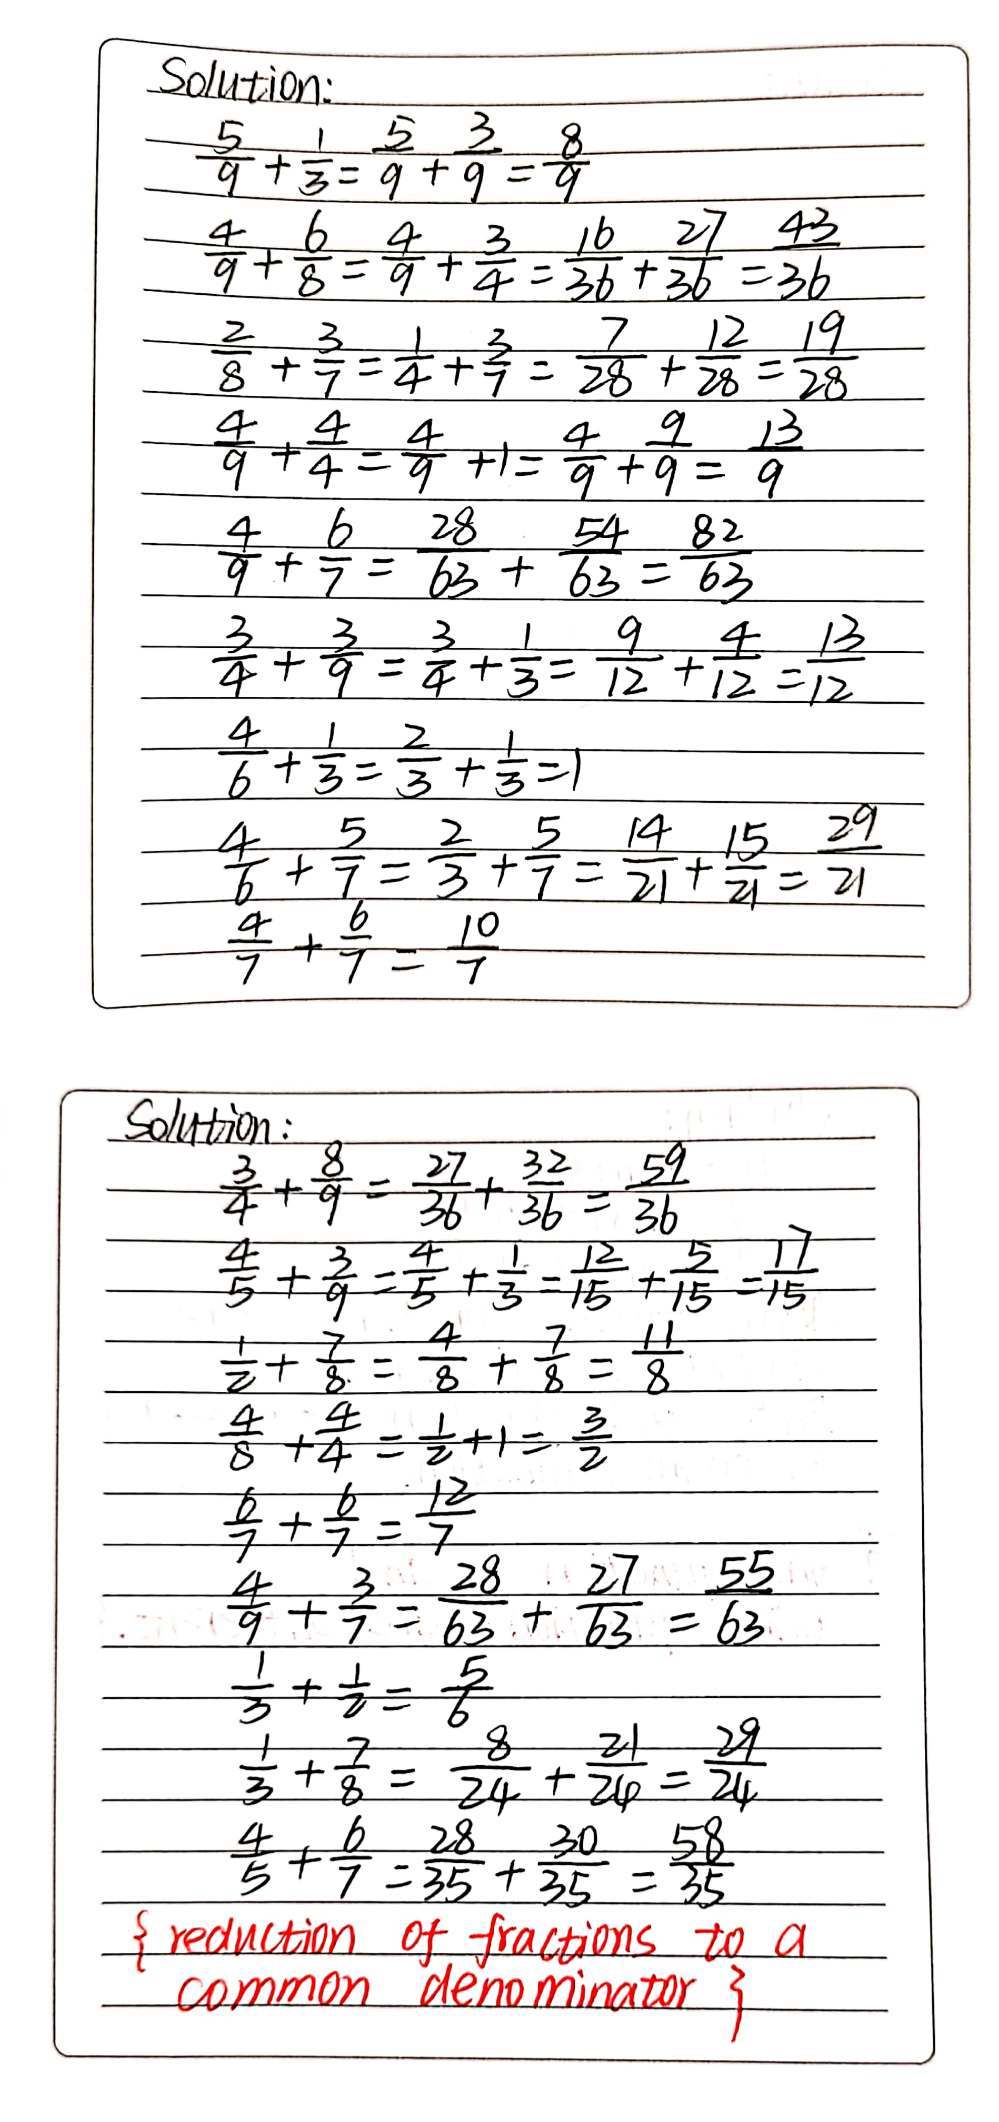 Solution:
5/9 + 1/3 = 5/9 + 3/9 = 8/9
4/9 + 6/8 = 4/9 + 3/4 = 16/36 + 27/36 = 43/36
2/8 + 3/7 = 1/4 + 3/7 = 7/28 + 12/28 = 19/28
4/9 + 4/4 = 4/9 + 1 = 4/9 + 9/9 = 13/9
4/9 + 6/7 = 28/63 + 54/63 = 82/63
3/4 + 3/9 = 3/4 + 1/3 = 9/12 + 4/12 = 13/12
4/6 + 1/3 = 2/3 + 1/3 = 1
4/6 + 5/7 = 2/3 + 5/7 = 14/21 + 15/21 = 29/21
4/7 + 6/7 = 10/7
Solution:
3/4 + 8/9 = 27/36 + 32/36 = 59/36
4/5 + 3/9 = 4/5 + 1/3 = 12/15 + 5/15 = 17/15
1/2 + 7/8 = 4/8 + 7/8 = 11/8
4/8 + 4/4 = 1/2 + 1 = 3/2
6/7 + 6/7 = 12/7
4/9 + 3/7 = 28/63 + 27/63 = 55/63
1/3 + 1/2 = 5/6
1/3 + 7/8 = 8/24 + 21/24 = 29/24
4/5 + 6/7 = 28/35 + 30/35 = 58/35
{ reduction of fractions to a
common denominator }